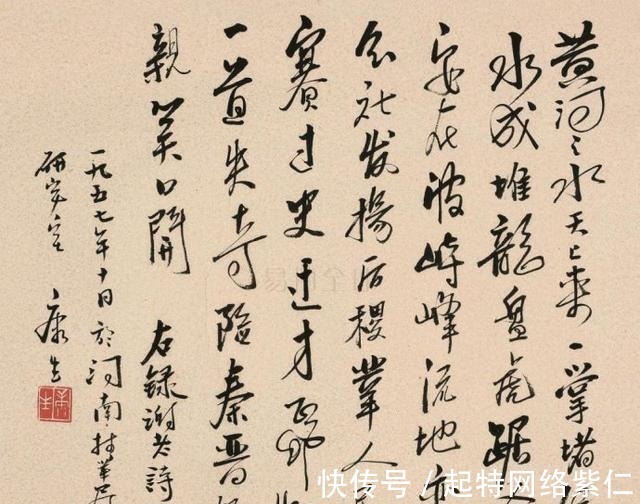 黄河之水天上来一掌堵
水成堆龍盘虎踞
安在波峙峰流地
公社发揚后稷業人
賽过史迁才
一道失奇險秦晋
親笑口開 右録謝老詩
一九五七年十月於河南林
研究室 康生
快传号／起特网络紫仁